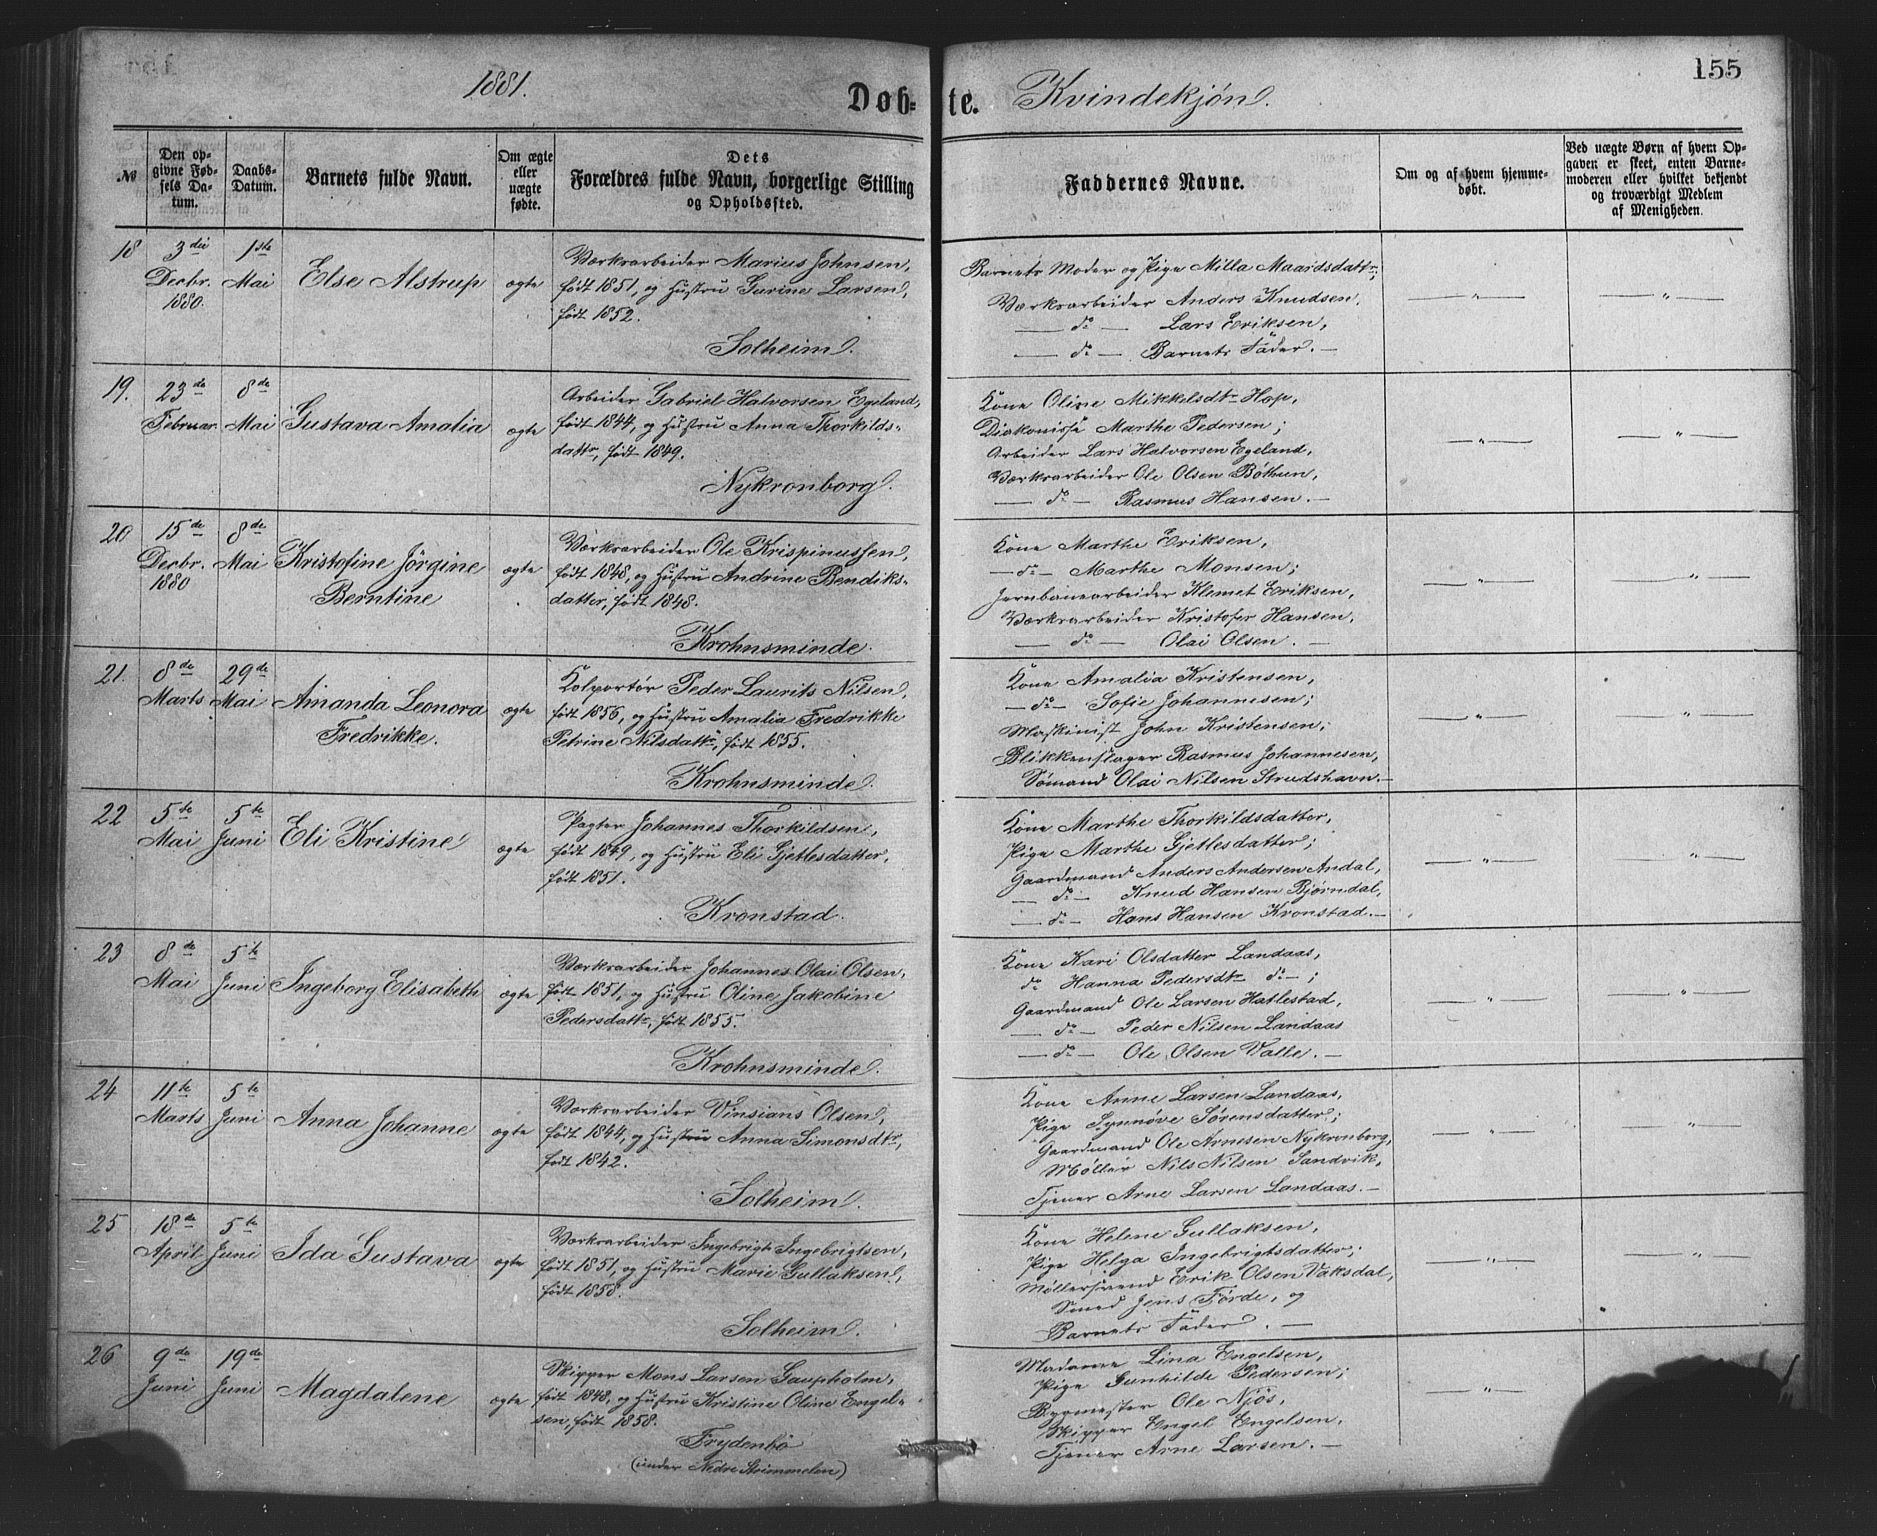 155
1881.
Døb=te. Kvindekjøn.
№
Den op-
givne Fød-
sels Da-
tum.
Daabs-
Datum.
Barnets fulde Navn.
Om ægte
eller
uægte
fødte.
Dets
Forældres fulde Navn, borgerlige Stilling
og Opholdssted.
Faddernes Navne.
Om og af hvem hjemme-
døbt.
Ved uægte Børn af hvem Op-
gaven er skeet, enten Barne-
moderen eller hvilket bekjendt
og troværdigt Medlem
af Menigheden.
18
3die
Decbr.
1880.
1ste
Mai
Else Alstrup
ægte
Værksarbeider Marius Johnsen,
født 1851, og Hustru Gurine Larsen,
født 1852.
Solheim.
Barnets Moder og Pige Milla Maardsdattr;
Værksarbeider Anders Knudsen,
— do — Lars Eriksen,
— do — Barnets Fader. —
— „ —
— „ —
19.
23de
Februar.
8de
Mai
Gustava Amalia
ægte
Arbeider Gabriel Halvorsen Egeland,
født 1844, og Hustru Anna Thorkilds-
dattr, født 1849.
Nykronborg.
Kone Oline Mikkelsdtr Hop,
Diakonisse Marthe Pedersen;
Arbeider Lars Halvorsen Egeland,
Værksarbeider Ole Olsen Bøthun,
— do — Rasmus Hansen. —
— „ —
— „ —
20
15de
Decbr.
1880
8de
Mai
Kristofine Jørgine
Berntine
ægte
Værksarbeider Ole Krispinussen,
født 1848, og Hustru Andrine Bendiks-
datter, født 1848.
Krohnsminde.
Kone Marthe Eriksen,
— do — Marthe Monsen;
Jernbanearbeider Klemet Eriksen,
Værksarbeider Kristofer Hansen,
— do — Olai Olsen. —
— „ —
— „ —
21.
8de
Marts
29de
Mai
Amanda Leonora
Fredrikke.
ægte
Kolportør Peder Laurits Nilsen,
født 1856, og Hustru Amalia Fredrikke
Petrine Nilsdattr, født 1855.
Krohnsminde.
Kone Amalia Kristensen,
— do — Sofie Johannesen;
Maskinist John Kristensen;
Blikkenslager Rasmus Johannesen,
Sømand Olai Nilsen Strudshavn. —
— „ —
— „ —
22
5te
Mai
5te
Juni
Eli Kristine
ægte
Pagter Johannes Thorkildsen,
født 1849, og Hustru Eli Gjetlesdatter,
født 1851.
Kronstad.
Kone Marthe Thorkildsdatter,
Pige Marthe Gjetlesdatter;
Gaardmand Anders Andersen Andal,
— do — Knud Hansen Bjørndal,
— do — Hans Hansen Kronstad. —
— „ —
— „ —
23
8de
Mai
5te
Juni
Ingeborg Elisabeth
ægte
Værksarbeider Johannes Olai Olsen,
født 1851, og Hustru Oline Jakobine
Pedersdattr, født 1855.
Krohnsminde.
Kone Kari Olsdatter Landaas,
do Hanna Pedersdtr do — ;
Gaardmand Ole Larsen Hatlestad,
— do — Peder Nilsen Landaas
— do — Ole Olsen Valle. —
— „ —
— „ —
24
11te
Marts
5te
Juni
Anna Johanne
ægte
Værksarbeider Vinsians Olsen,
født 1844, og Hustru Anna Simonsdtr,
født 1842.
Solheim.
Kone Anne Larsen Landaas,
Pige Synnøve Sørensdatter;
Gaardmand Ole Arnesen Nykronborg,
Møller Nils Nilsen Sandvik,
Tjener Arne Larsen Landaas. —
— „ —
— „ —
25
18de
April
5te
Juni
Ida Gustava
ægte
Værksarbeider Ingebrigt Ingebrigtsen,
født 1851, og Hustru Marie Gullaksen,
født 1858.
Solheim.
Kone Helene Gullaksen,
Pige Helga Ingebrigtsdatter;
Møllersvend Erik Olsen Vaksdal,
Smed Jens Førde, og
Barnets Fader. —
— „ —
— „ —
26
9de
Juni
19de
Juni
Magdalene
ægte
Skipper Mons Larsen Gaupholm,
født 1848, og Hustru Kristine Oline Engel-
sen, født 1858.
Frydenbø
(under Nedre Strimmelen)
Madame Lina Engelsen,
Pige Gunhilde Pedersen;
Bygmester Ole Njøs,
Skipper Engel Engelsen,
Tjener Arne Larsen. —
— „ —